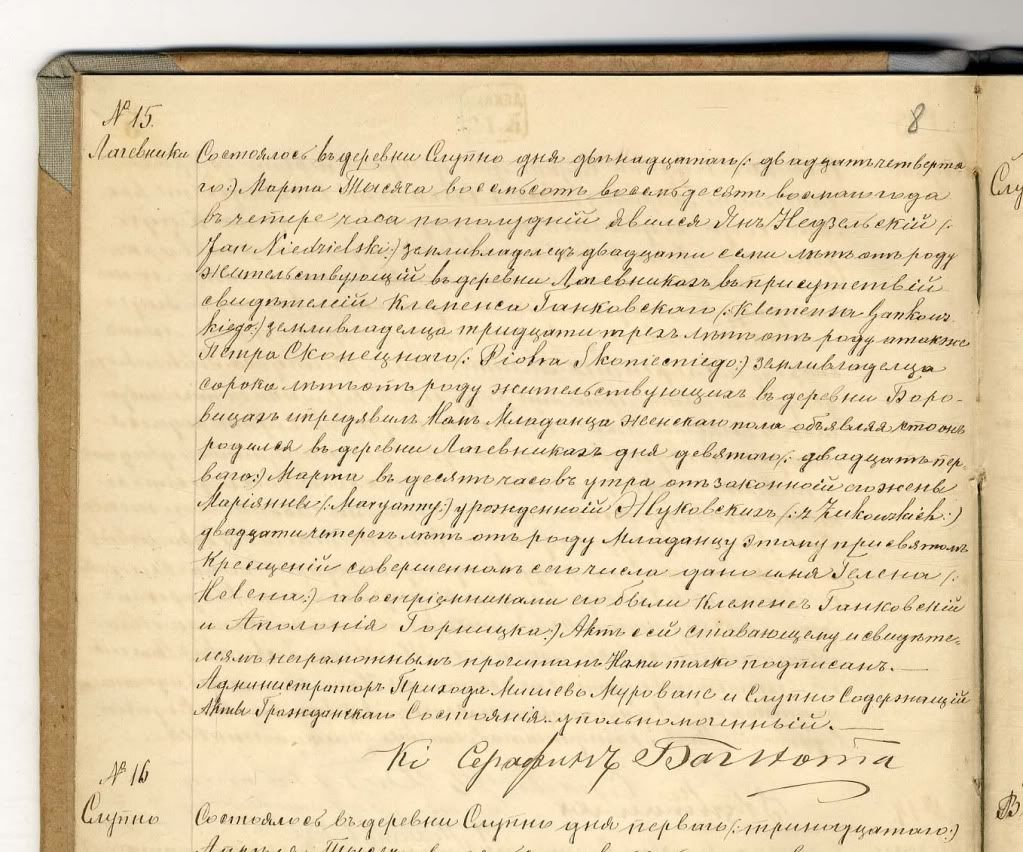 8
№ 15.
Лагевники
Состоялось въ деревни Слупно дня двѣнадцатаго /: двадцать четверта
го:) Марта Тысяча восемьсотъ восемьдесятъ восмаго года
въ четере часа пополудній явился Янъ Недзельскій /:
Jan Niedzielski:) земливладелецъ двадцати семи лѣтъ отъ роду
жительствующій въ деревни Лагевникахъ въ присутствій
свидѣтелей Клеменса Ганковскаго /: Klemensa Gankow-
kiego:) земливладелца тридцати трехъ лѣтъ отъ роду а также
Петра Сконецнаго /: Piotra Skoniecniego:) земливладелца
сорока лѣтъ отъ роду жительствующихъ въ деревни Боро-
вицахъ и предявилъ Намъ Младанца женскаго пола объявляя что онъ
родился въ деревни Лагевникахъ дня девятаго /: двадцать пер-
ваго:) Марта въ десять часовъ утра отъ законной его жены
Маріянны /: Maryanny:) урожденной Жуковскихъ /: z Żukowskich:)
двадцати четерехъ лѣтъ отъ роду Младанцу этому при святомъ
Крещеній совершенномъ сего числа дано имя Гелена /:
Helena:) а воспріемниками его были Клеменсъ Ганковскій
и Аполонія Горницка:) Актъ сей ставающему и свидѣте-
лямъ неграмотнымъ прочитанъ Нами толко подписанъ.—
Администраторъ Прихода Мишево Мурованe и Слупно Содержащій
Акты Гражданскаго Состоянія упольномоченный.—
Кі Серафинъ Багнота
№ 16
Слупно
Состоялось въ деревни Слупно дня перваго /: тринадцатаго:)